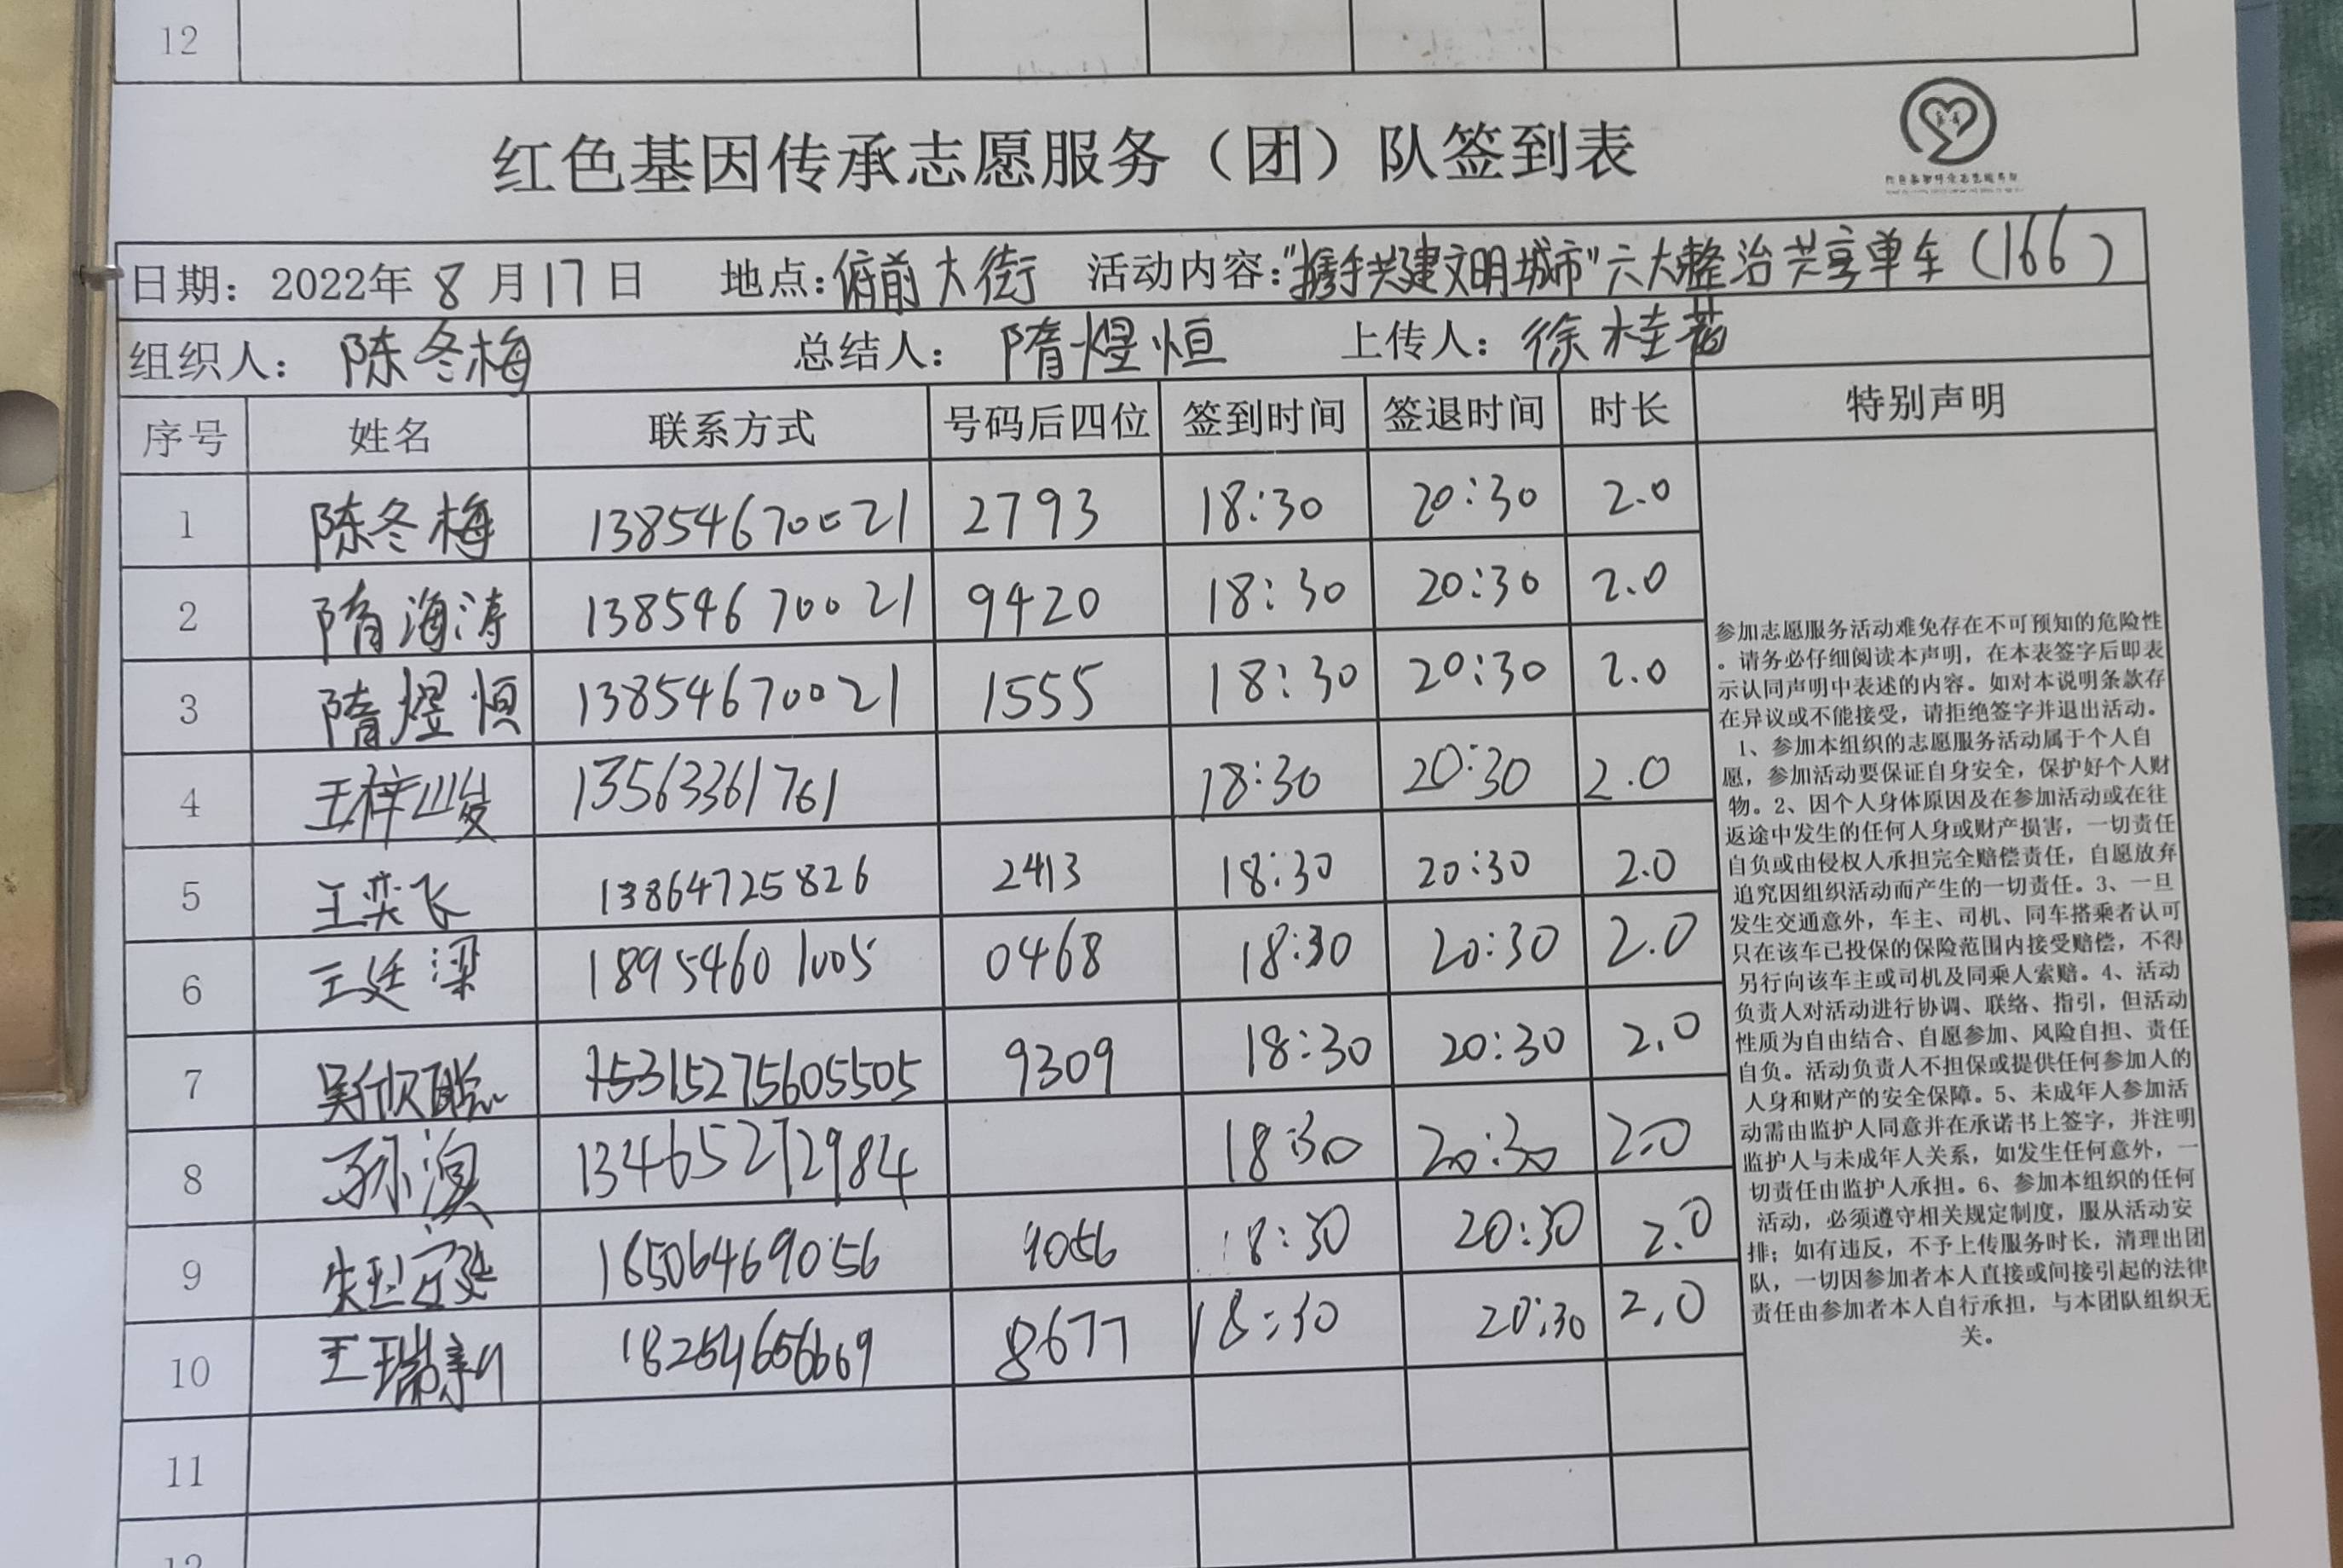 12
红色基因传承志愿服务（团）队签到表
日期：2022年 8 月 17 日 地点：俯前大街 活动内容："携手共建文明城市"六大整治共享单车（166）
组织人：陈冬梅 总结人：隋煜恒 上传人：徐桂花
序号 姓名 联系方式 号码后四位 签到时间 签退时间 时长 特别声明
1 陈冬梅 13854670021 2793 18:30 20:30 2.0
2 隋海涛 13854670021 9420 18:30 20:30 2.0
3 隋煜恒 13854670021 1555 18:30 20:30 2.0
4 王梓 13563361761 18:30 20:30 2.0
5 王奕飞 13864725826 2413 18:30 20:30 2.0
6 王廷梁 18954601005 0468 18:30 20:30 2.0
7 吴欣聪 15275605505 9309 18:30 20:30 2.0
8 孙溴 13465272984 18:30 20:30 2.0
9 16506469056 9056 18:30 20:30 2.0
10 王瑞新 18254656669 8677 18:30 20:30 2.0
11
12
参加志愿服务活动难免存在不可预知的危险性
。请务必仔细阅读本声明，在本表签字后即表
示认同声明中表述的内容。如对本说明条款存
在异议或不能接受，请拒绝签字并退出活动。
1、参加本组织的志愿服务活动属于个人自
愿，参加活动要保证自身安全，保护好个人财
物。2、因个人身体原因及在参加活动或在往
返途中发生的任何人身或财产损害，一切责任
自负或由侵权人承担完全赔偿责任，自愿放弃
追究因组织活动而产生的一切责任。3、一旦
发生交通意外，车主、司机、同车搭乘者认可
只在该车已投保的保险范围内接受赔偿，不得
另行向该车主或司机及同乘人索赔。4、活动
负责人对活动进行协调、联络、指引，但活动
性质为自由结合、自愿参加、风险自担、责任
自负。活动负责人不担保或提供任何参加人的
人身和财产的安全保障。5、未成年人参加活
动需由监护人同意并在承诺书上签字，并注明
监护人与未成年人关系，如发生任何意外，一
切责任由监护人承担。6、参加本组织的任何
活动，必须遵守相关规定制度，服从活动安
排；如有违反，不予上传服务时长，清理出团
队，一切因参加者本人直接或间接引起的法律
责任由参加者本人自行承担，与本团队组织无
关。